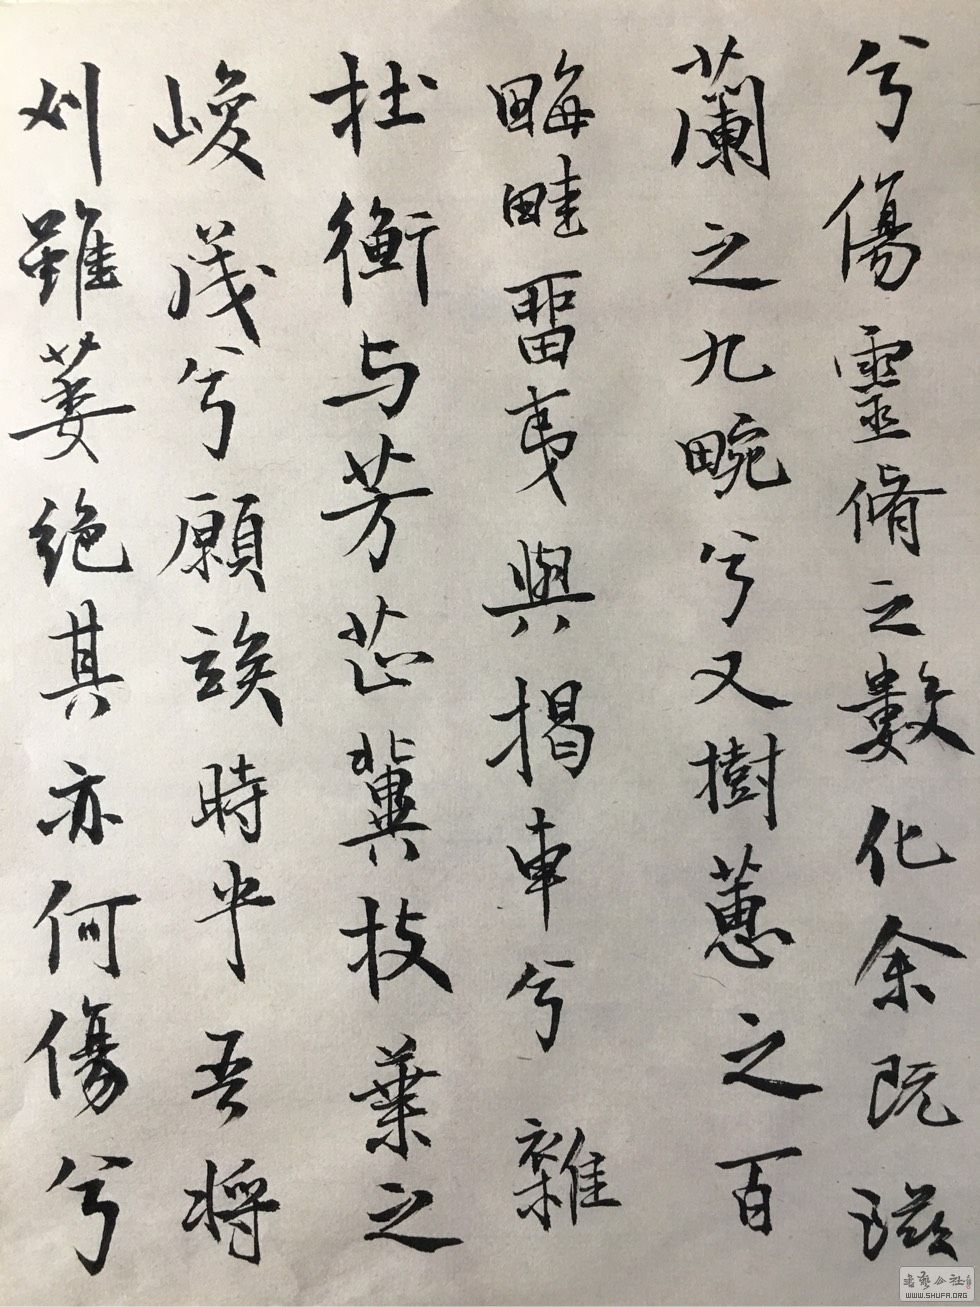 兮傷靈脩之數化余既滋
蘭之九畹兮又樹蕙之百
畮畦畱夷與揭車兮雜
杜衡与芳芷冀枝葉之
峻茂兮願竢時乎吾將
刈雖萎絕其亦何傷兮
書藝公社
WWW.SHUFA.ORG